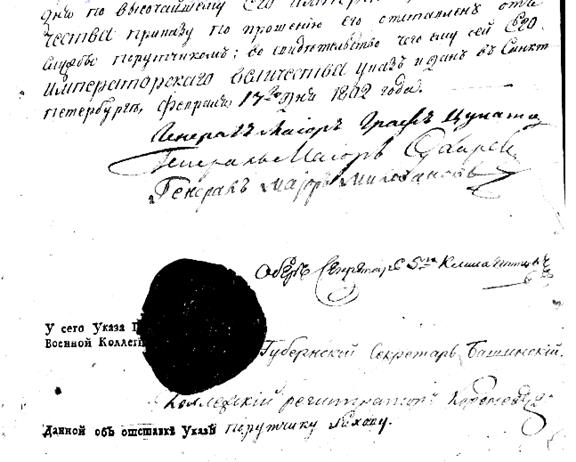 дню по высочайшему Его Импера
чества приказу по прошению его отставленъ отъ
службы порутчикомъ; во свидѣтельство чего му сей Его
Императорскаго Величества указъ и данъ въ Санкт
петербургѣ, Февраля 17го дня 1802 года.
Генералъ Маіоръ Графъ
Генералъ Маіоръ
Генералъ маіоръ
Оберъ Секретарь
У сего Указа П
Военной Коллегі
Губернской Секретарь Башинскій.
Коллежскій регистраторъ
Данной объ отставкѣ Указъ порутчику Лихову.